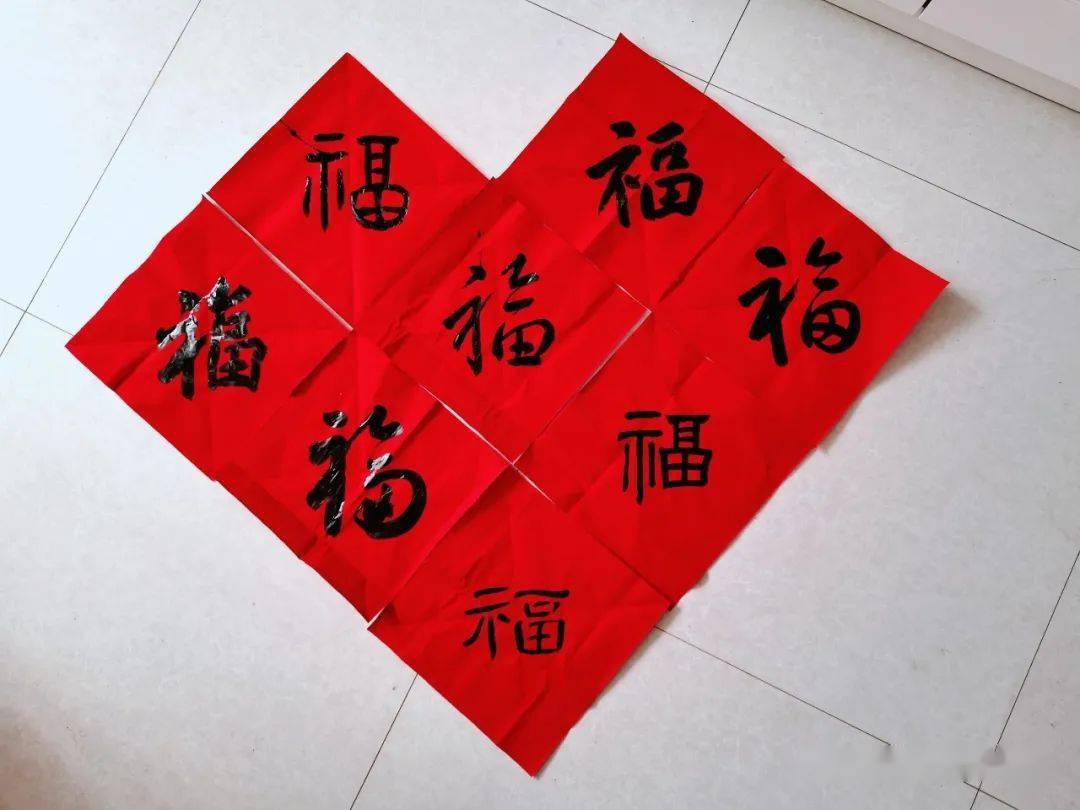 福
福
福
福
福
福
福
福